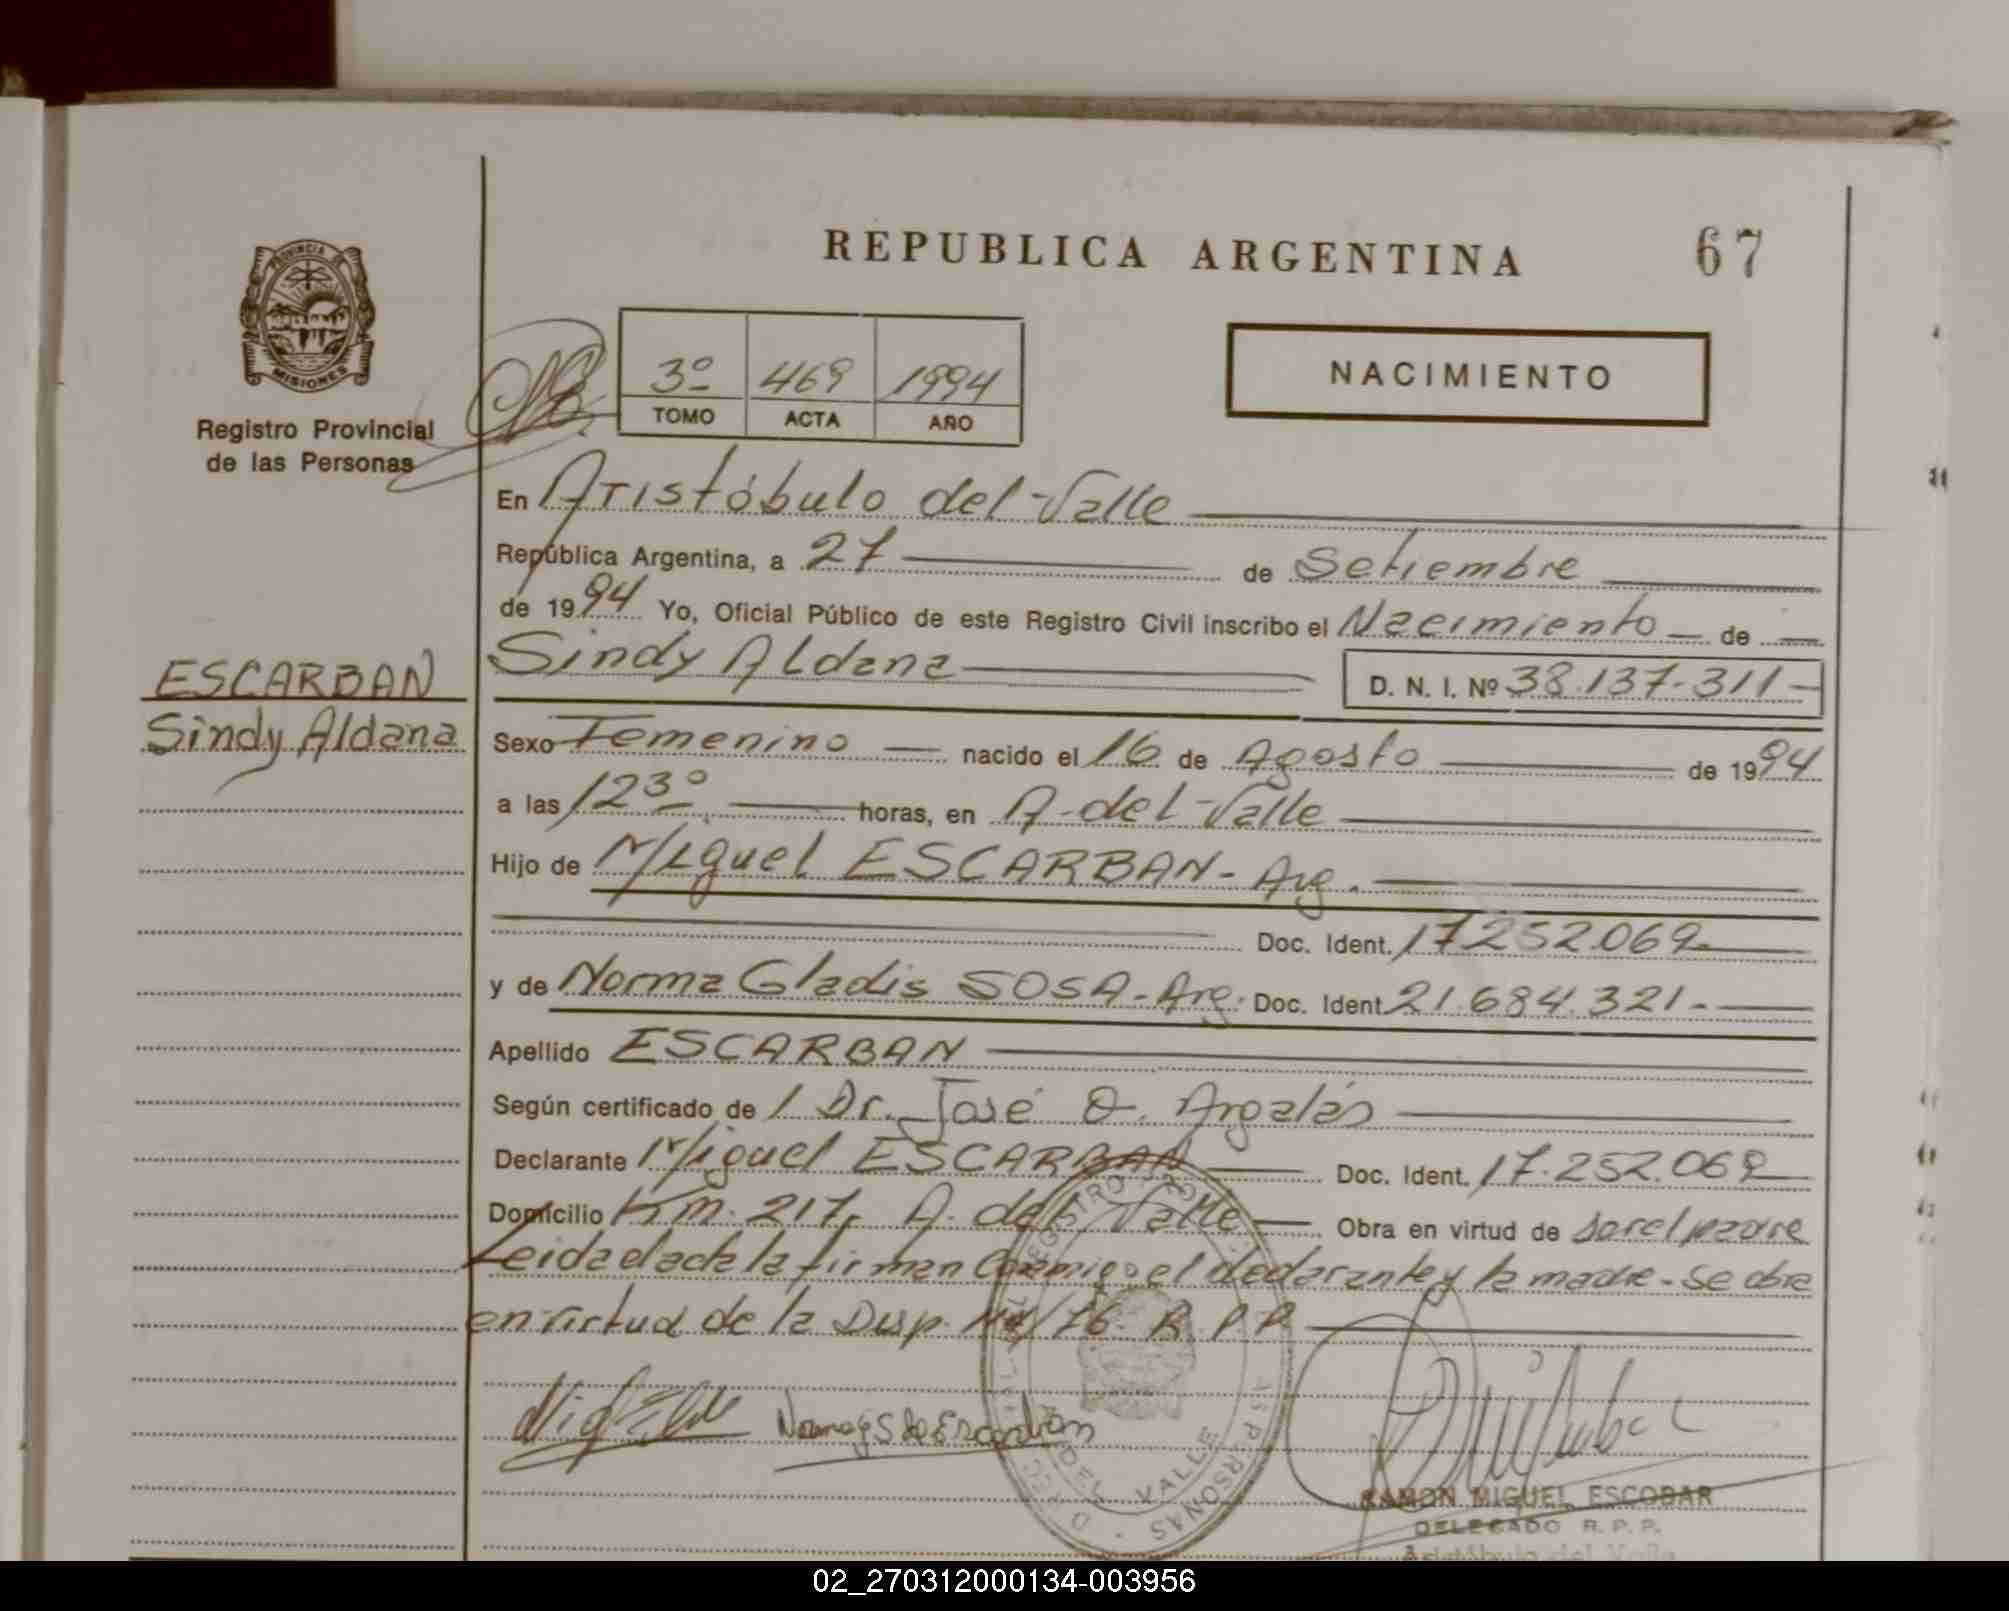 REPUBLICA ARGENTINA
67
PROVINCIA DE
MISIONES
Registro Provincial
de las Personas
3º 469 1994
TOMO ACTA AÑO
NACIMIENTO
En Aristóbulo del Valle
República Argentina, a 27 de Setiembre
de 1994 Yo, Oficial Público de este Registro Civil inscribo el Nacimiento de
Sindy Aldana D. N. I. Nº 38.137.311-
ESCARBAN
Sindy Aldana
Sexo Femenino nacido el 16 de Agosto de 1994
a las 12 3º horas, en A. del Valle
Hijo de Miguel ESCARBAN - Arg.
Doc. Ident. 17252.069-
y de Norma Gladis SOSA - Arg. Doc. Ident. 21.684.321-
Apellido ESCARBAN
Según certificado de / Dr. José O. Argalás
Declarante Miguel ESCARBAN Doc. Ident. 17.252.069
Domicilio Km. 217, A. del Valle Obra en virtud de ser el padre
Leida el acta la firman Conmigo el declarante y la madre - se obra
en virtud de la Disp. /76 R.P.P.
DEL VALLE
RAMON MIGUEL ESCOBAR
DELEGADO R. P. P.
Aristóbulo del Valle
02_270312000134-003956